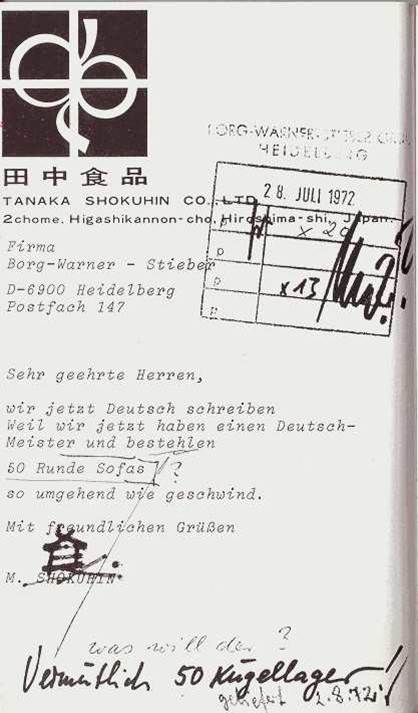 BORG-WARNER-STIEBER GMBH
HEIDELBERG
田中食品
28. JULI 1972
TANAKA SHOKUHIN CO., LTD.
2chome, Higashikannon-cho, Hiroshima-shi, Japan.
x 20
Firma
Borg-Warner - Stieber
P
D-6900 Heidelberg
P
x 13
Postfach 147
Sehr geehrte Herren,
wir jetzt Deutsch schreiben
Weil wir jetzt haben einen Deutsch-
Meister und bestehlen
50 Runde Sofas ?
so umgehend wie geschwind.
Mit freundlichen Grüßen
M. SHOKUHIN
was will der ?
Vermutlich 50 Kugellager!!
geliefert 2.8.72